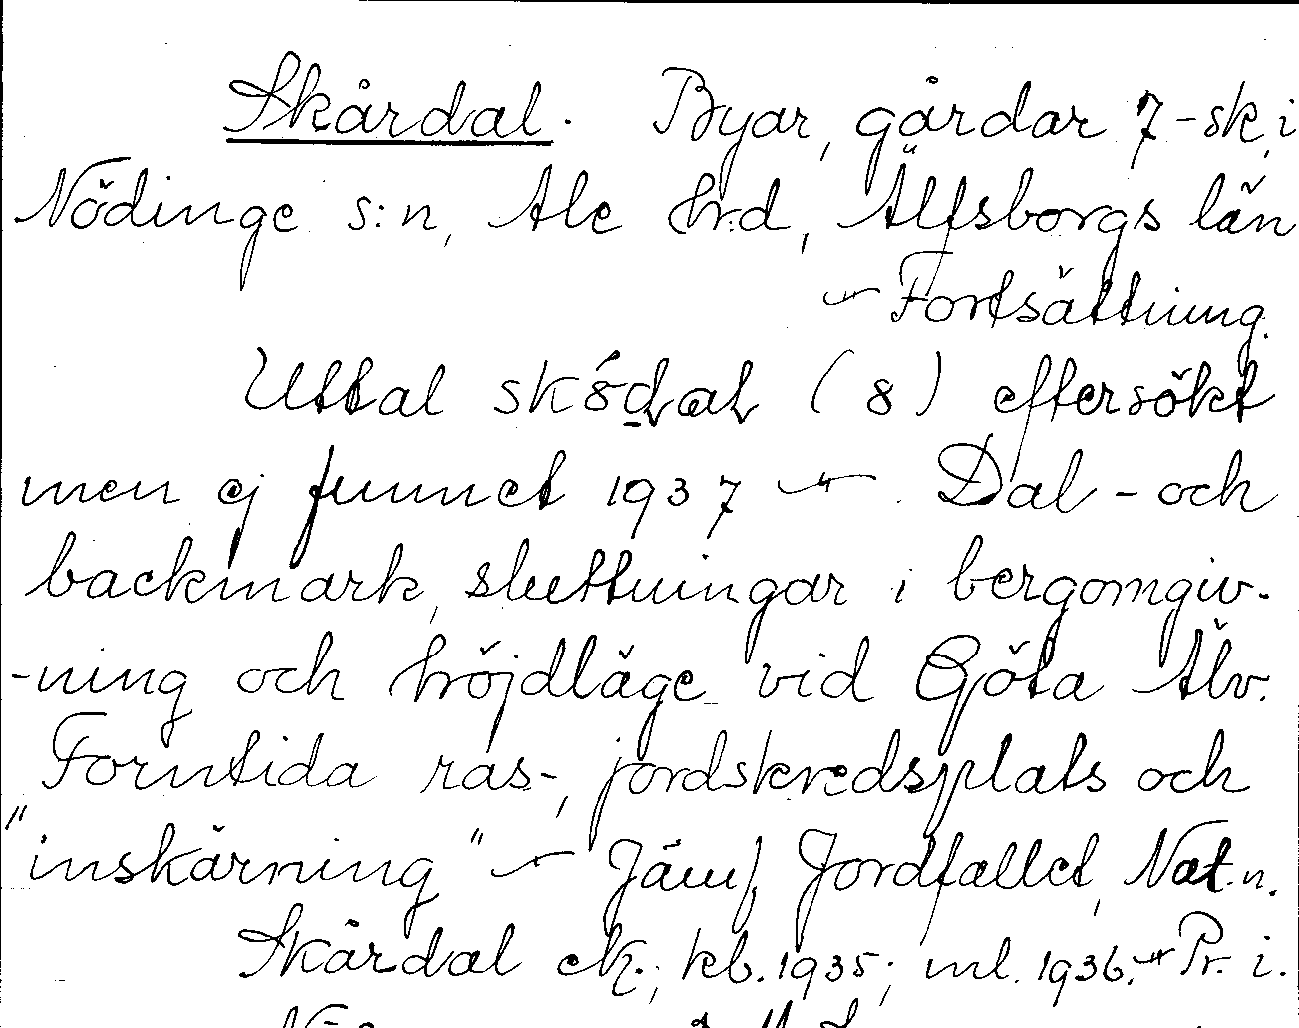 Skårdal. Byar, gårdar 7-sk, i
Nödinge s:n, Ale h:d, Älfsborgs län
— Fortsättning.
Uttal skó̄dal (8) eftersökt
men ej funnet 1937 — . Dal- och
backmark, sluttningar i bergomgiv-
-ning och höjdläge vid Göta Älv.
Forntida ras-, jordskredsplats och
"inskärning" — Jämf, Jordfallet, Nat.n.
Skårdal ek.; kb. 1935; ml. 1936. — Pr. i.